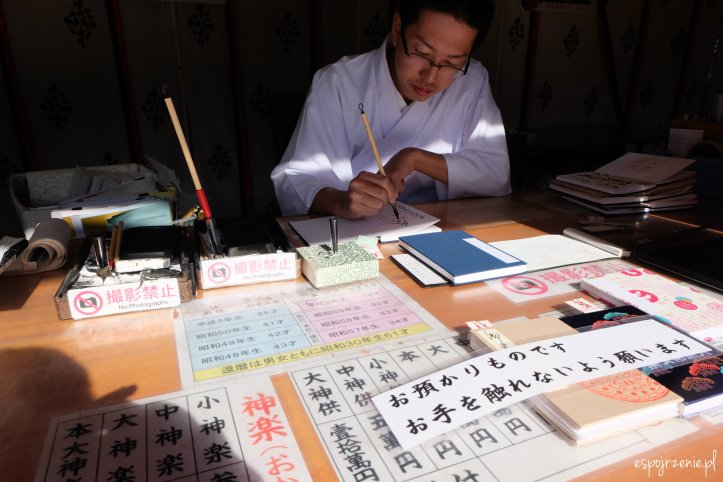 撮影禁止
No Photographs
撮影禁止
No Photographs
平成3年生 25才
昭和50年生 41才
昭和49年生 42才
昭和48年生 43才
昭和59年生 32才
昭和58年生 33才
昭和57年生 34才
還暦は男女ともに昭和30年生 61才
お預かりものです
お手を触れないよう願います
本大
小神
中神供
大神供
壱拾萬円
神楽(お
小神楽
中神楽
大神楽
本大神
espojrzenie.pl